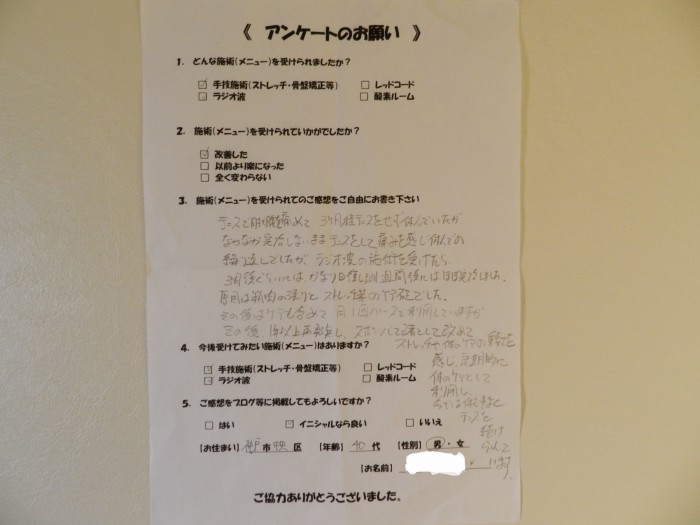 《 アンケートのお願い 》
1. どんな施術(メニュー)を受けられましたか？
☑ 手技施術(ストレッチ・骨盤矯正等) □ レッドコード
☑ ラジオ波 □ 酸素ルーム
2. 施術(メニュー)を受けられていかがでしたか？
☑ 改善した
□ 以前より楽になった
□ 全く変わらない
3. 施術(メニュー)を受けられてのご感想をご自由にお書き下さい
テニスで 痛めて 3ヶ月程テニスをせず休んでいたが
なかなか完治しないままテニスをして痛みを感じ休んでの
繰り返しでしたが、ラジオ波の施術を受けたら、
3日後ぐらいには、かなり回復し、1週間後にはほぼ完治しました。
原因は筋肉の ストレッチ不足でした。
その後はケアも含めて 月1回ペースで利用していますが
その後、1年以上再発なし、スポンサー 改めて
ストレッチや体のケアの
感じ、定期的に
体のケアとして
利用し、
テニスを
続け
られて
います。
4. 今後受けてみたい施術(メニュー)はありますか？
☑ 手技施術(ストレッチ・骨盤矯正等) □ レッドコード
☑ ラジオ波 □ 酸素ルーム
5. ご感想をブログ等に掲載してもよろしいですか？
□ はい ☑ イニシャルなら良い □ いいえ
【お住まい】 神戸市 中央 区 【年齢】 40 代 【性別】 男・女
【お名前】
ご協力ありがとうございました。